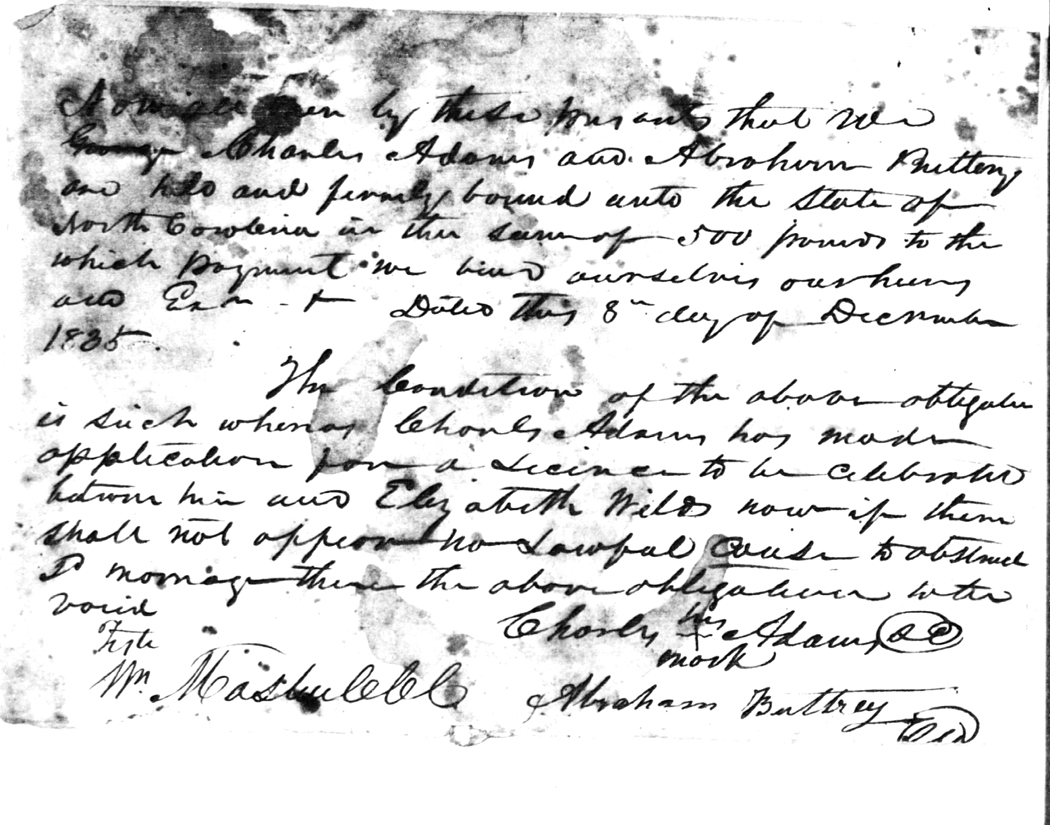 Know all men by these presants that we
George Charles Adams and Abraham Buttery
are held and firmly bound unto the State of
North Carolina in the sum of 500 pounds to the
which payment we bind ourselves our heirs
and Exn Dated this 8th day of December
1835.
The Condition of the above obligation
is such whereas Charls Adams has made
application for a Licince to be celebrated
between him and Elizabeth Wilds now if there
shall not appear no Lawful cause to obstruct
marriage then the above obligation to be
voied
Charles his Adams
mark
Teste
Wm Masten CCC
Abraham Buttrey